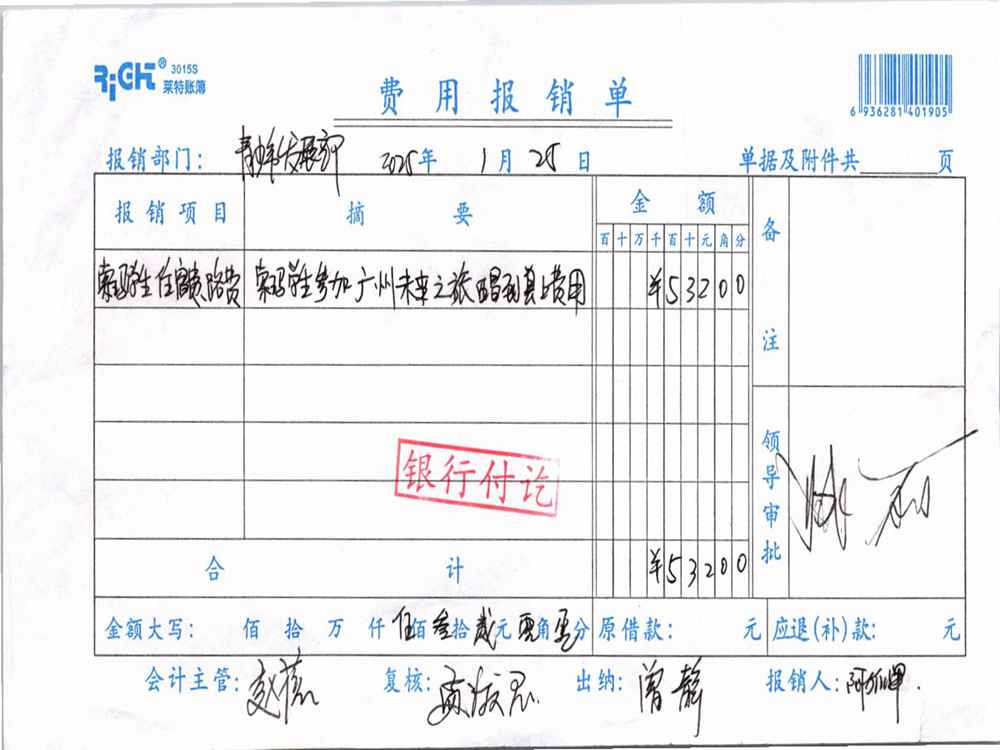 RiGHT® 3015S
莱特账簿
费用报销单
6 936281 401905
报销部门： 青少年发展部 2025年 1月 25日 单据及附件共 页
报销项目 摘要 金额 备注
百十万千百十元角分
学生住宿费路费 学生参加广州未来之旅 费用 ¥53200
银行付讫
领导审批
合计 ¥53200
金额大写： 佰 拾 万 仟 伍佰 叁拾 贰元 零角 零分 原借款： 元 应退(补)款： 元
会计主管： 赵 复核： 出纳： 曾静 报销人： 阿